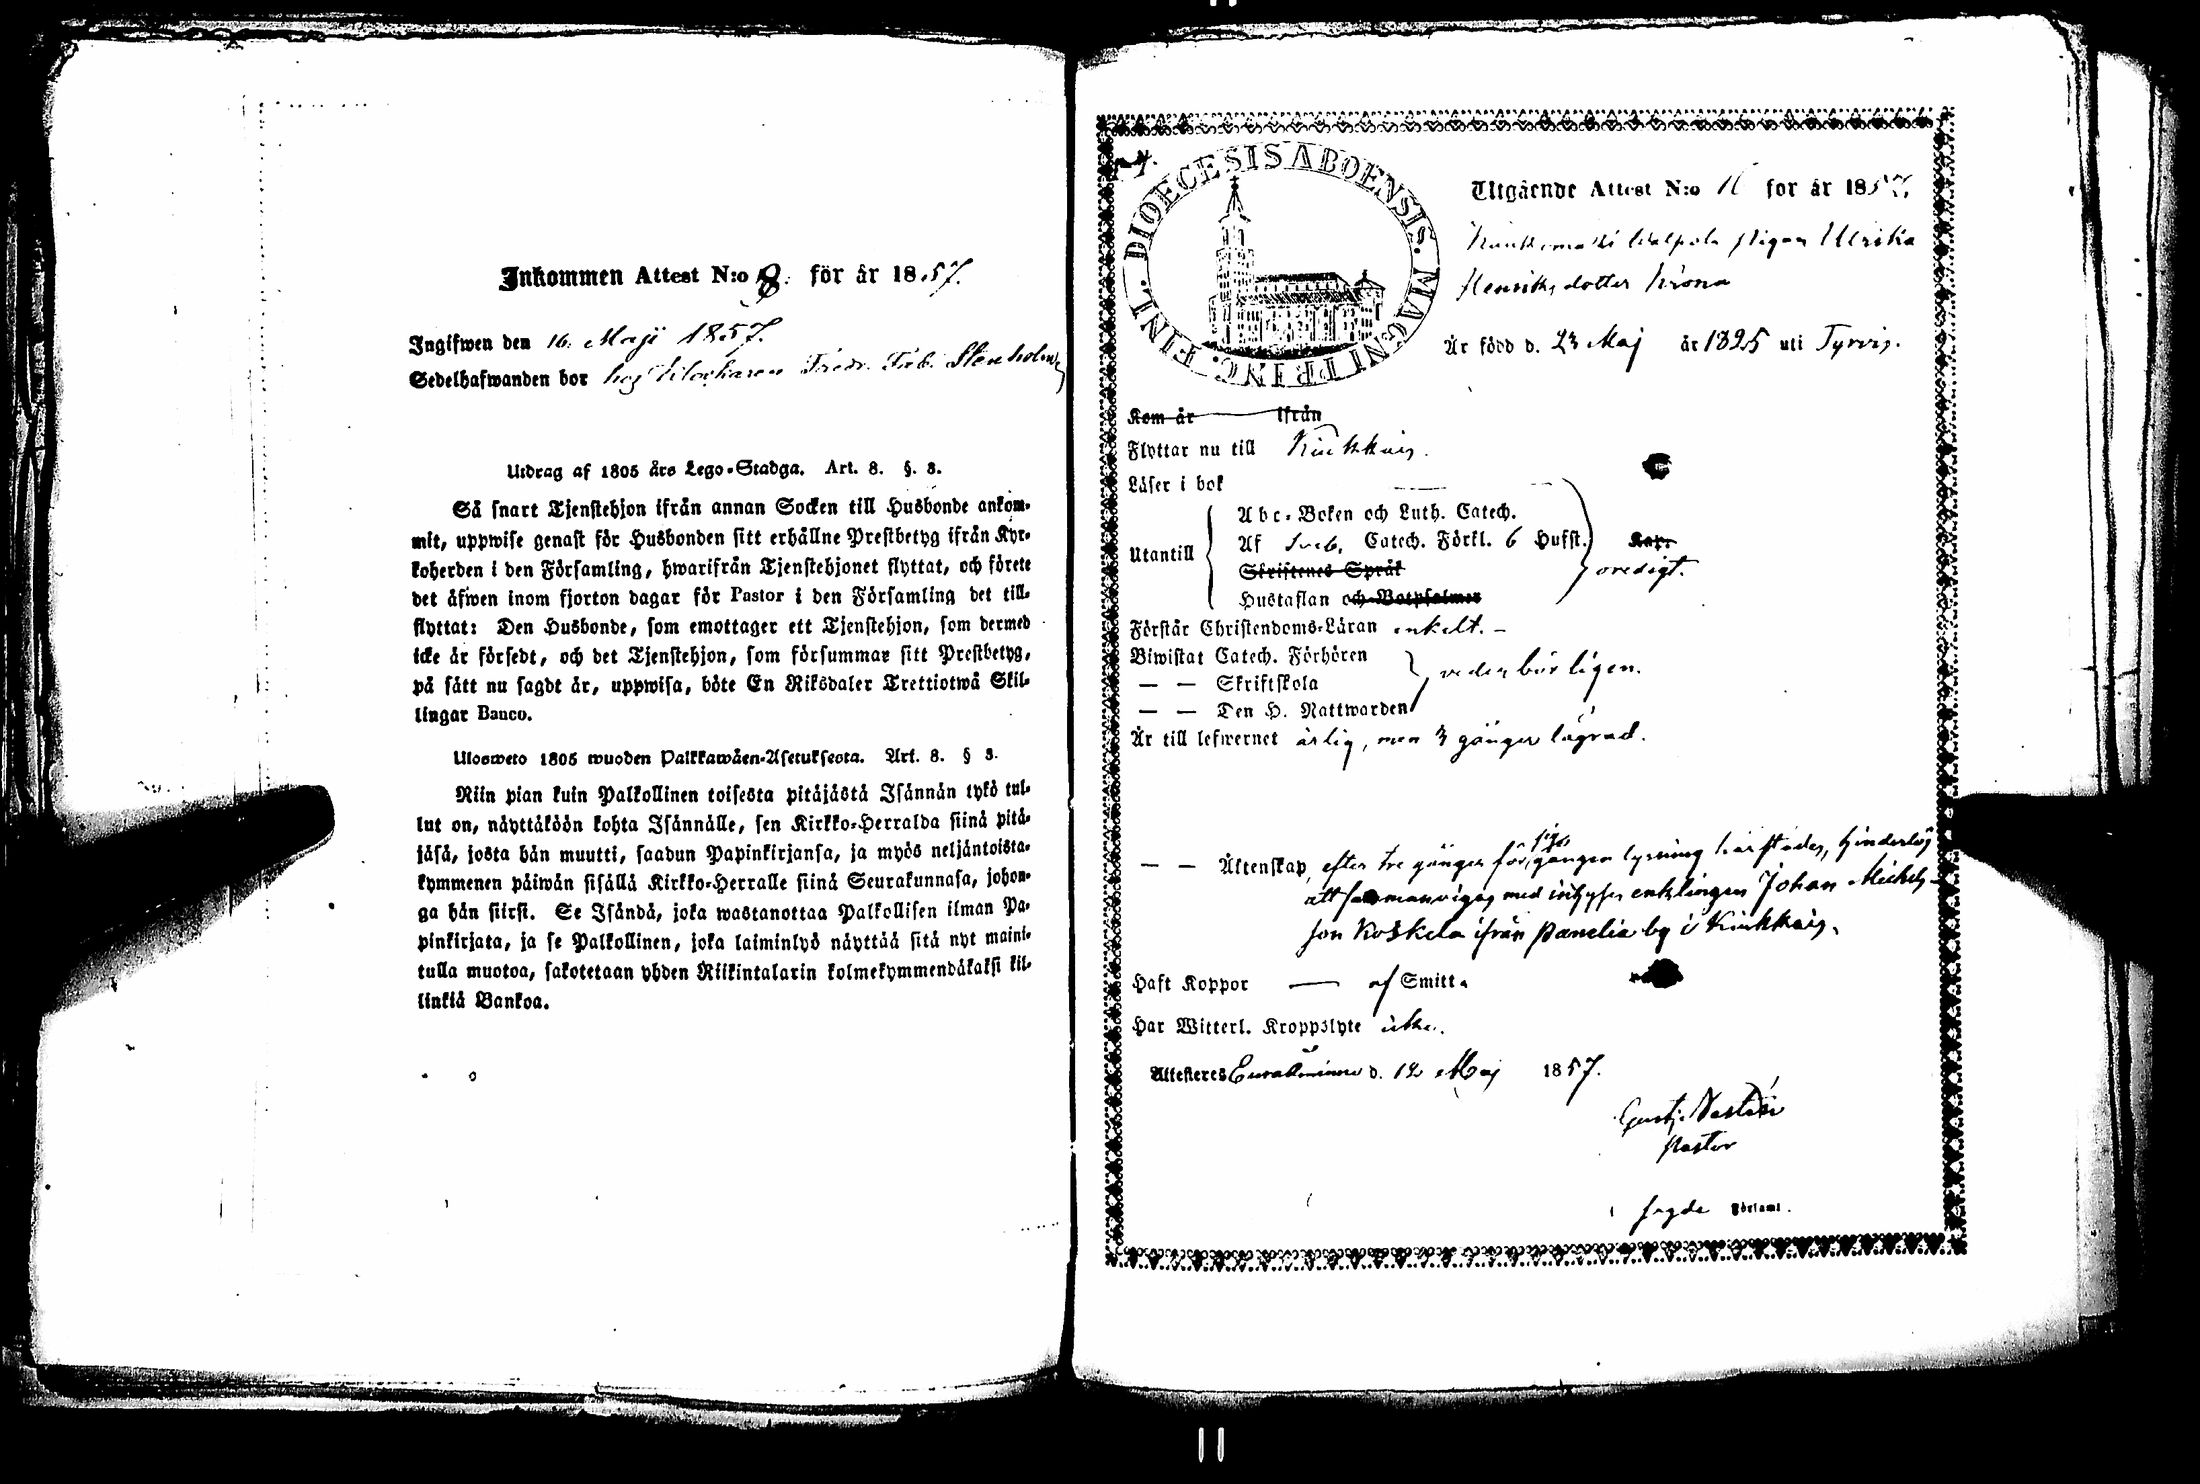 Inkommen Attest N:o 8. för år 1857.
Ingifwen den 16. Maji 1857.
Sedelhafwanden bor hos Klockaren Fredr. Fab. Stenholm
Utdrag af 1805 års Lego-Stadga. Art. 8. §. 3.
Så snart Tjenstehjon ifrån annan Socken till Husbonde ankom-
mit, uppwise genast för Husbonden sitt erhållne Prestbetyg ifrån Kyr-
koherden i den Församling, hwarifrån Tjenstehjonet flyttat, och förete
det äfwen inom fjorton dagar för Pastor i den Församling det till-
flyttat: Den Husbonde, som emottager ett Tjenstehjon, som dermed
icke är försedt, och det Tjenstehjon, som försummar sitt Prestbetyg,
på sätt nu sagdt är, uppwisa, böte En Riksdaler Trettiotwå Skil-
lingar Banco.
Ulosweto 1805 wuoden Palkkawäen-Asetuksesta. Art. 8. § 3.
Niin pian kuin Palkollinen toisesta pitäjästä Isännän tykö tul-
lut on, näyttäköön kohta Isännälle, sen Kirkko-Herralda siinä pitä-
jäsä, josta hän muutti, saadun Papinkirjansa, ja myös neljäntoista-
kymmenen päiwän sisällä Kirkko-Herralle siinä Seurakunnasa, johon-
ga hän siirsi. Se Isändä, joka wastanottaa Palkollisen ilman Pa-
pinkirjata, ja se Palkollinen, joka laiminlyö näyttää sitä nyt maini-
tulla muotoa, sakotetaan yhden Riikintalarin kolmekymmendäkaksi kil-
linkiä Bankoa.
FINL. DIOECESIS ABOENSIS. MAGNI PRINC.
Utgående Attest N:o 11 för år 1857.
pigan Ulrika
Henriksdotter Krona
Är född d. 23 Maj år 1825 uti Tyrvis.
Kom år ifrån
Flyttar nu till Kiukkais.
Läser i bok
Abc-Boken och Luth. Catech.
Utantill Af Sveb. Catech. Förkl. 6 Hufst. Kap.
Skriftenes Språk oredigt.
Hustaflan och Botpsalmer
Förstår Christendoms-Läran enkelt. –
Biwistat Catech. Förhören
— — Skriftskola vederbörligen.
— — Den H. Nattwarden
Är till lefwernet ärlig, men 3 gånger lägrad.
— — Äktenskap, efter tre gånger försiggången lysning härstädes, hinderlös
att sammanvigas med inhyses enklingen Johan Michels-
son Koskela ifrån Panelia by i Kiukkais.
Haft Koppor — af Smitta
Har Witterl. Kroppslyte icke.
Attesteres Euraåminne d. 12 Maj 1857.
Pastor
sagde Församl.